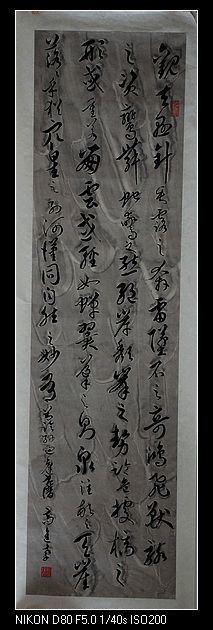 觀夫懸針垂露之異奔雷墜石之奇鴻飛獸駭
之資鸞舞蛇驚之態絕岸頹峰之勢臨危據槁之
形或重若崩雲或輕如蟬翼導之則泉注之天崖
落乎猶眾星之列河漢同自然之妙有
NIKON D80 F5.0 1/40s ISO200